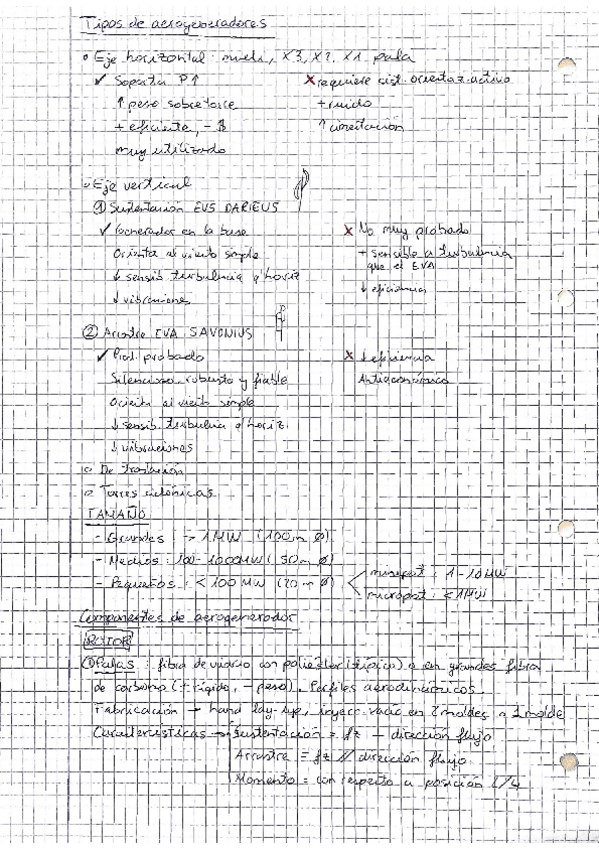 Tipos de aerogeneradores
o Eje horizontal: multi, x3, x2, x1 pala
✓ Soporta P↑
x requiere sist. orientaz. activo
↑ peso sobre torre
+ ruido
+ eficiente, - $
↑ cimentación
muy utilizado
o Eje vertical
① Sustentación EVS DARIEUS
✓ Generador en la base
x No muy probado
Orienta al viento simple
+ sensible a turbulencia
que el EVA
↓ sensib. turbulencia q' horiz
↓ eficiencia
↓ vibraciones
② Arrastre EVA SAVONIUS
✓ Prod. probado
x ↓ eficiencia
Silencioso, robusto y fiable
Antieconómico
Orienta al viento simple
↓ sensib. turbulencia q' horiz.
↓ vibraciones
o De traslación
o Torres ciclónicas
TAMAÑO
- Grandes : > 1MW (100m ø)
- Medios : 100-1000MW (50m ø)
- Pequeños : < 100 MW (20m ø)
minipot : 1-10MW
micropot : < 1MW
Componentes de aerogenerador
ROTOR
① Palas : fibra de vidrio con poliéster (típico) o en grandes fibra
de carbono (+ rígido, - peso). Perfiles aerodinámicos
Fabricación → hand lay-up, inyecc. vacío en 2 moldes o 1 molde
Características → Sustentación = fz — dirección flujo
Arrastre = fz // dirección flujo
Momento = con respecto a posición L/4